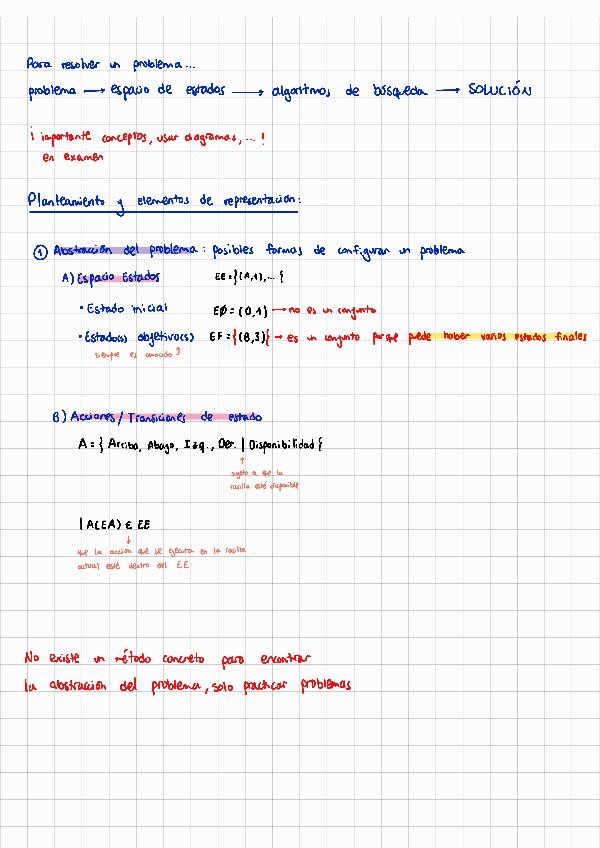 Para resolver un problema...
problema → espacio de estados → algoritmos de búsqueda → SOLUCIÓN
¡ importante conceptos, usar diagramas, ... !
en examen
Planteamiento y elementos de representación:
① Abstracción del problema: posibles formas de configurar un problema
A) Espacio Estados EE = {(A,1),... {
• Estado inicial EØ = (0,1) → no es un conjunto
• Estado(s) objetivo(s) EF = {(8,3)} → es un conjunto porque puede haber varios estados finales
siempre es conocido ↑
B) Acciones / Transiciones de estado
A = { Arriba, Abajo, Izq., Der. | Disponibilidad {
↑
sujeto a que la
casilla esté disponible
| A(EA) ∈ EE
↓
que la acción que se ejecuta en la casilla
actual esté dentro del EE
No existe un método concreto para encontrar
la abstracción del problema, solo practicar problemas